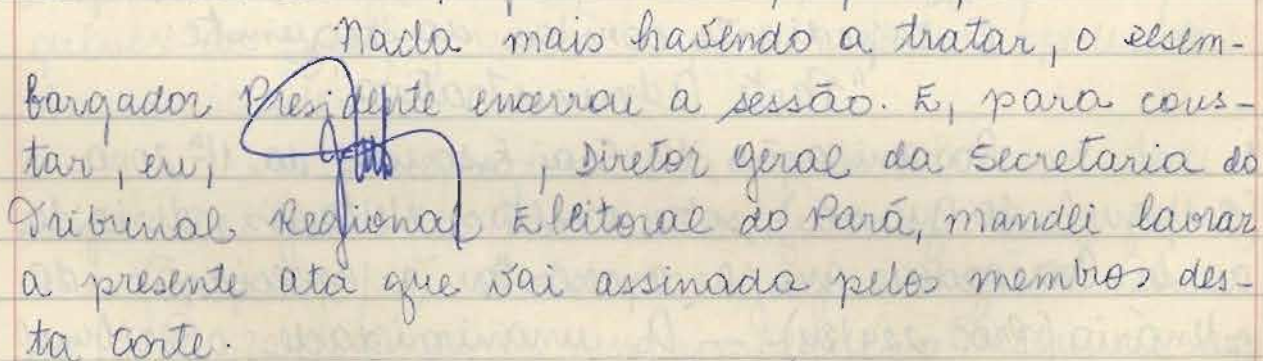 Nada mais havendo a tratar, o desem-
bargador Presidente encerrou a sessão. E, para cons-
tar, eu, , Diretor Geral da Secretaria do
Tribunal Regional Eleitoral do Pará, mandei lavrar
a presente ata que vai assinada pelos membros des-
ta Corte.